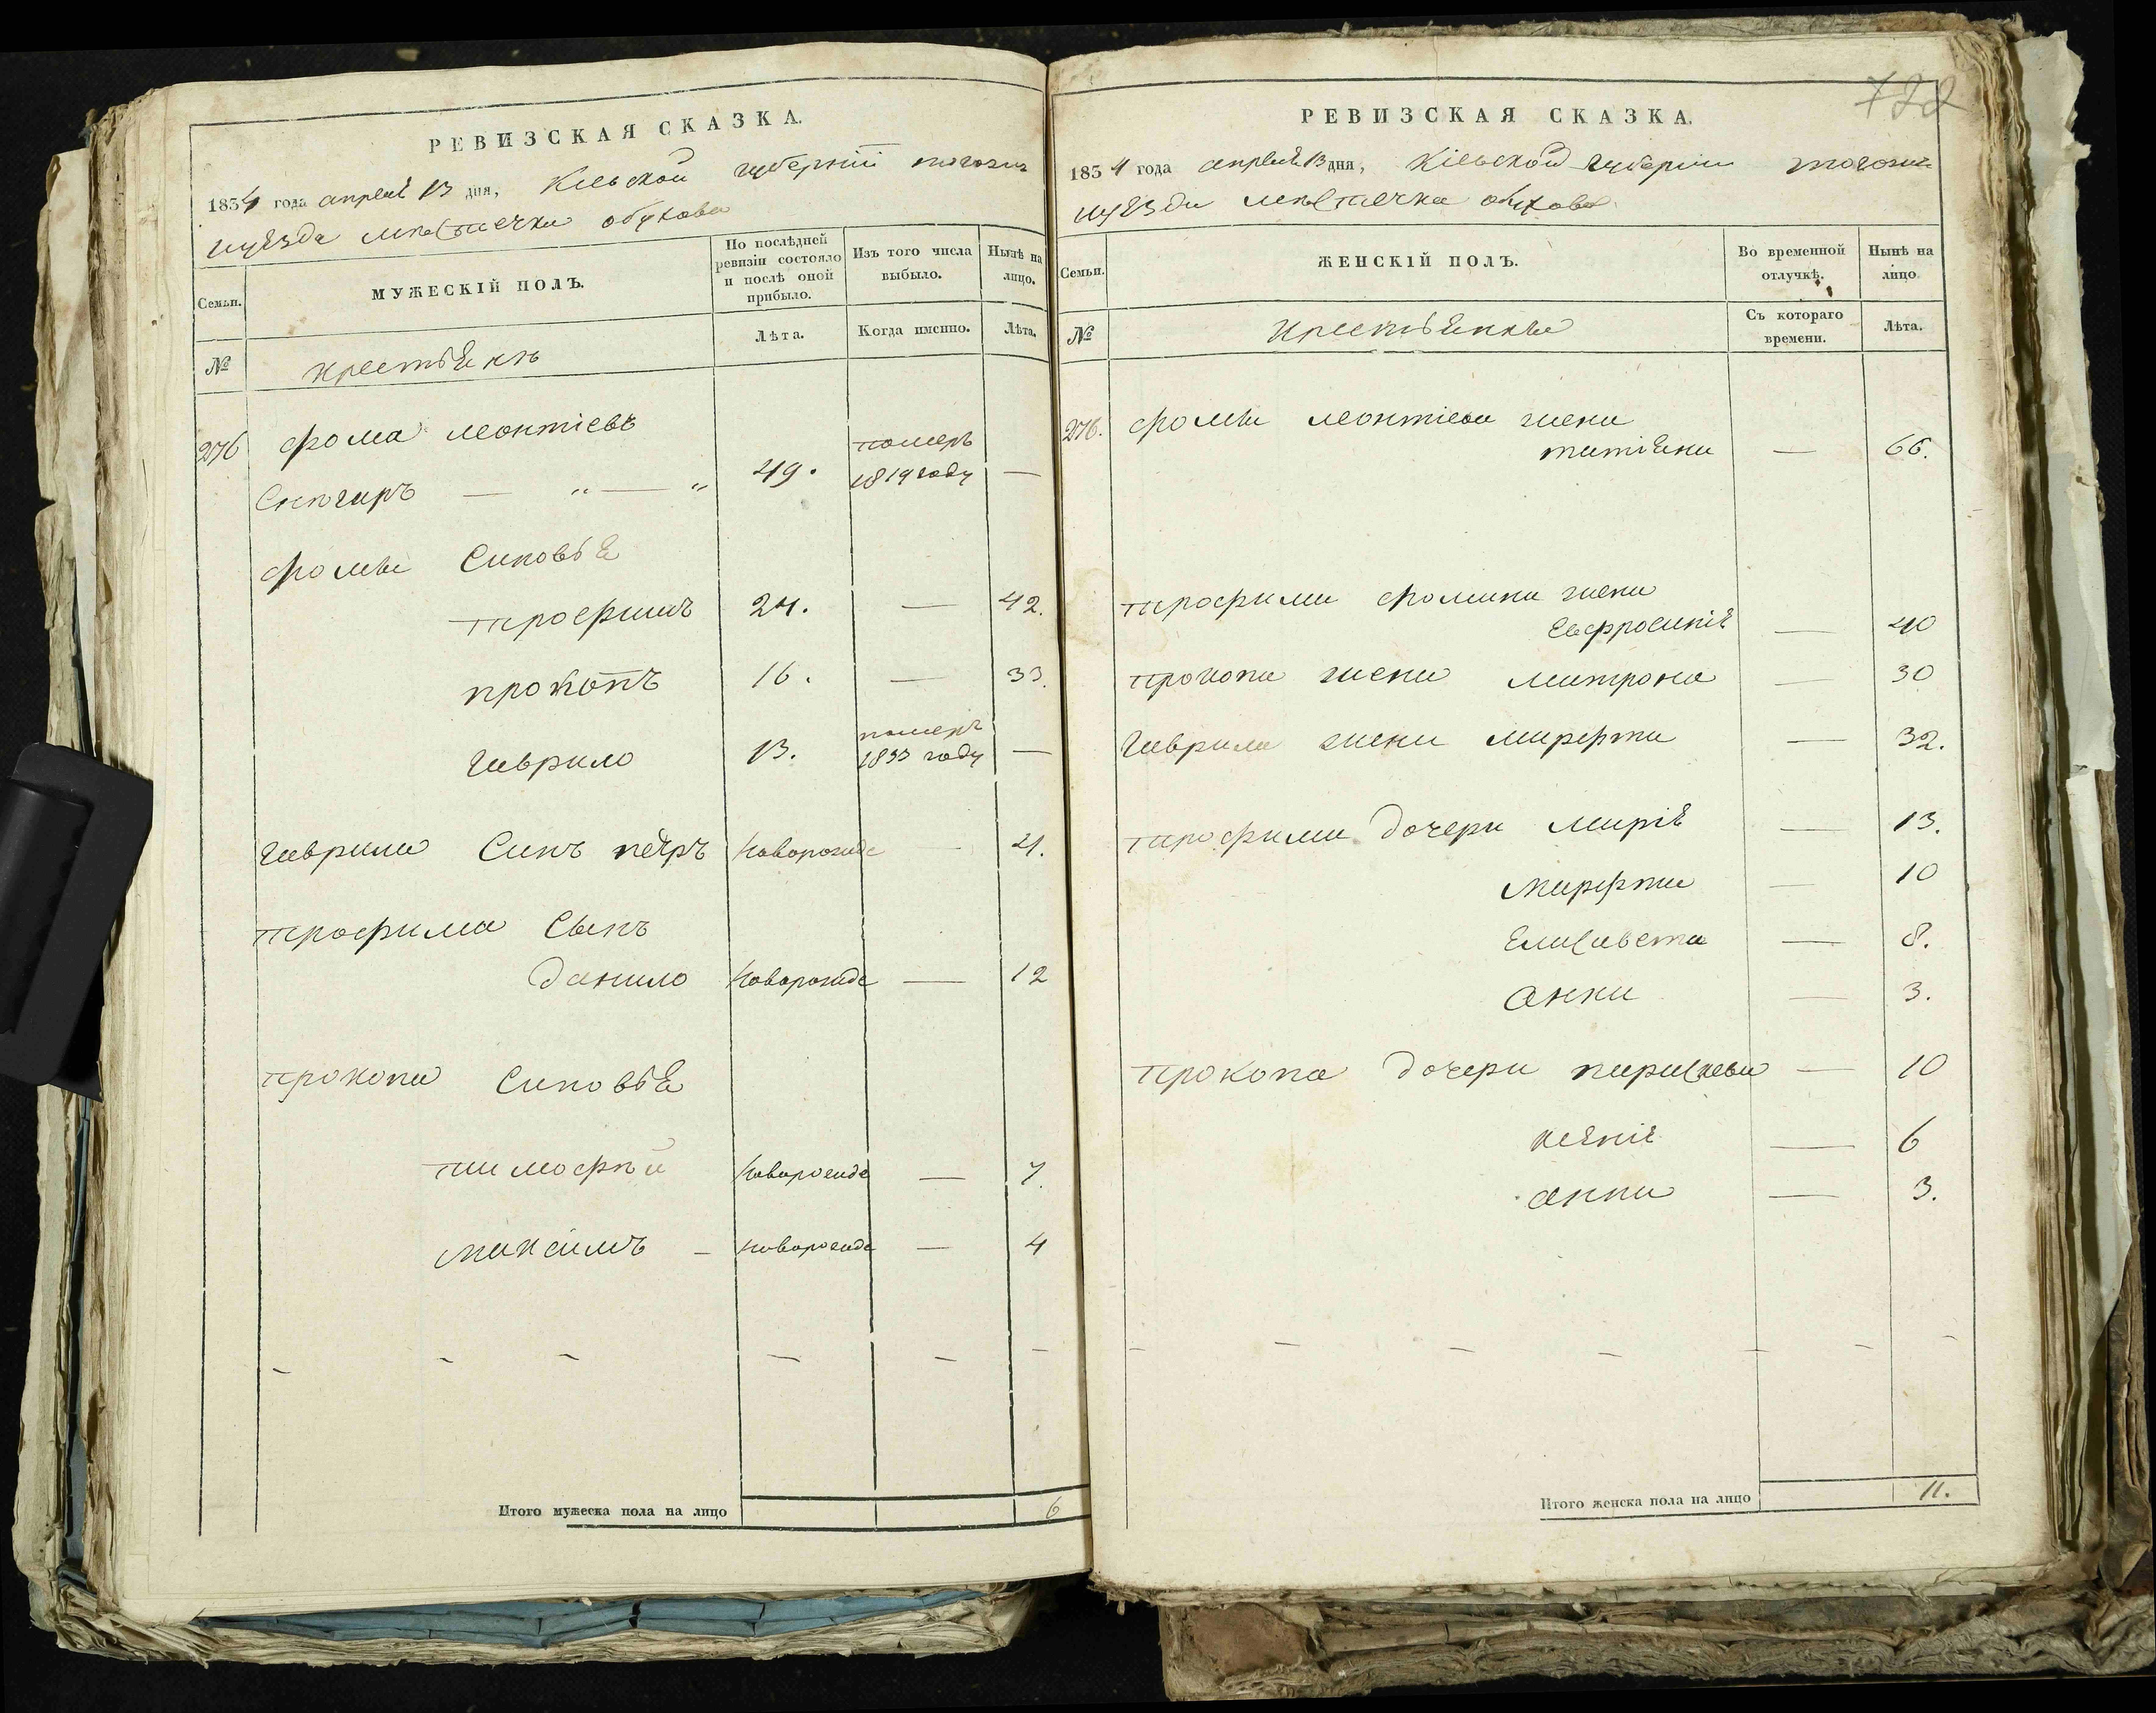 РЕВИЗСКАЯ СКАЗКА.
1834 года апреля 13 дня, Кіевской губерніи тогожъ
иуезда местечка обухова
Семьи.
МУЖЕСКІЙ ПОЛЪ.
По послѣдней ревизіи состояло и послѣ оной прибыло.
Изъ того числа выбыло.
Нынѣ на лицо.
№
крестьянъ
Лѣта.
Когда именно.
Лѣта.
276 фома леонтіевъ
Снѣгиръ — „ — „ 49. померъ 1819 году —
фомы Синовья
трофимъ 24. — 42.
прокопъ 16. — 33.
гаврило 13. померъ 1833 году —
гаврила Синъ петръ Новорожде — 21.
трофима Сынъ
данило Новорожде — 12
прокопа Синовья
тимофѣй Новорожде — 7.
максимъ — новорожде — 4
Итого мужеска пола на лицо 6
РЕВИЗСКАЯ СКАЗКА.
1834 года апреля 13 дня, Кіевской губерніи тогожъ
иуезда местечка обухова
Семьи.
ЖЕНСКІЙ ПОЛЪ.
Во временной отлучкѣ.
Нынѣ на лицо
№
крестьянки
Съ котораго времени.
Лѣта.
276. фомы леонтіева жена
татіяна — 66.
трофима фомина жена
Евфросинія — 40
прокопа жена матрона — 30
гаврила жена марфта — 32.
трофима дочери марія — 13.
марфта — 10
Елисавета — 8.
Анна — 3.
прокопа дочери параскева — 10
ксенія — 6
анна — 3.
Итого женска пола на лицо 11.